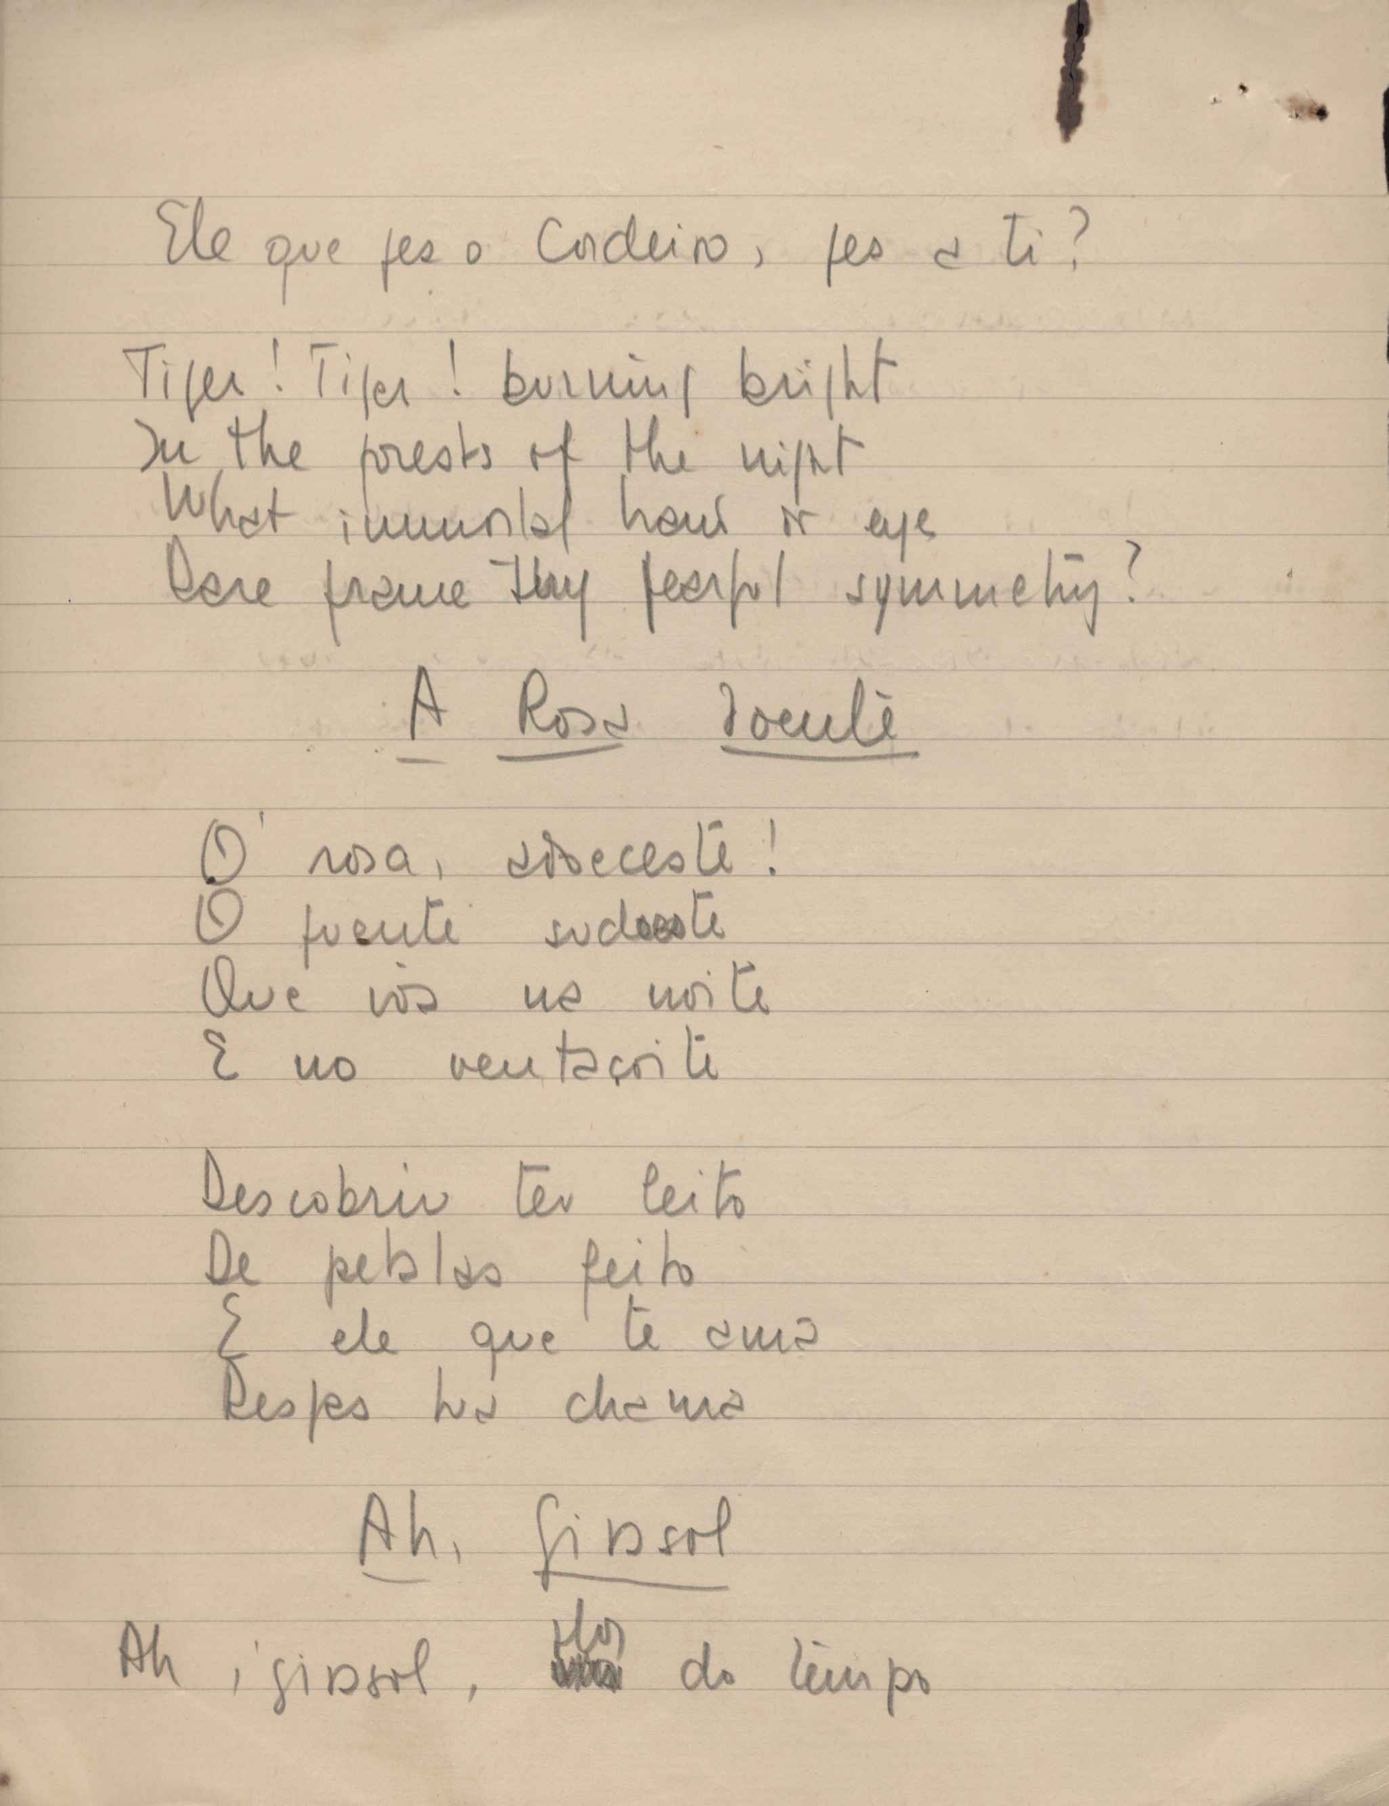 Ele que fes o Cordeiro, fes a ti?
Tiger! Tiger! burning bright
In the forests of the night
What immortal hand or eye
Dare frame thy fearful symmetry?
A Rosa doente
O' rosa, adoeceste!
O fuente sudoeste
Que vôa na noite
E no ventaçoite
Descobriu teu leito
De petalas feito
E ele que te ama
Desfes tua chama
Ah, Girasol
Ah, girasol, flor do tempo